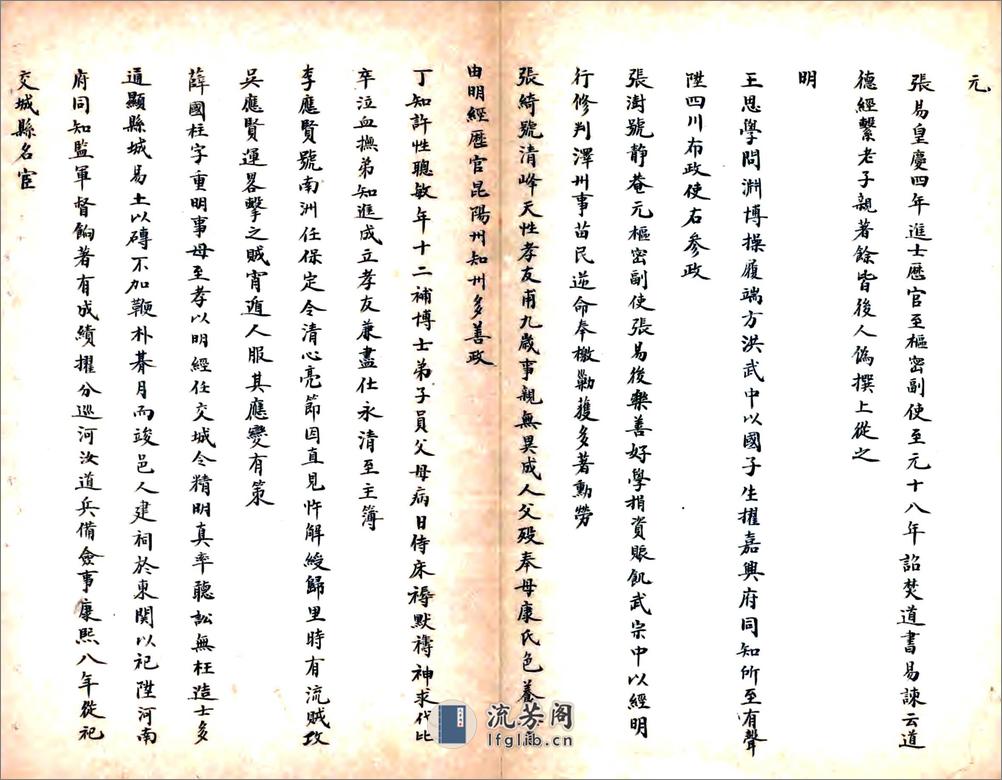 元
張易皇慶四年進士歷官至樞密副使至元十八年詔焚道書易諫云道
德經繫老子親著餘皆後人偽撰上從之
明
王思學問淵博操履端方洪武中以國子生擢嘉興府同知所至有聲
陞四川布政使右參政
張澍號靜菴元樞密副使張易後樂善好學捐資賑飢武宗中以經明
行修判澤州事苗民逆命奉檄勦獲多著勳勞
張綺號清峰天性孝友甫九歲事親無異成人父歿奉母康氏色養
由明經歷官昆陽州知州多善政
丁知許性聰敏年十二補博士弟子員父母病日侍床褥默禱神求代比
卒泣血撫弟知進成立孝友兼盡仕永清至主簿
李應賢號南洲任保定令清心亮節因直見忤解綬歸里時有流賊攻
吳應賢運畧擊之賊宵遁人服其應變有策
薛國柱字重明事母至孝以明經任交城令精明真率聽訟無枉造士多
通顯縣城易土以磚不加鞭朴朞月而竣邑人建祠於東関以祀陞河南
府同知監軍督餉著有成績擢分巡河汝道兵備僉事康熙八年從祀
交城縣名宦
流芳阁
lfglib.cn